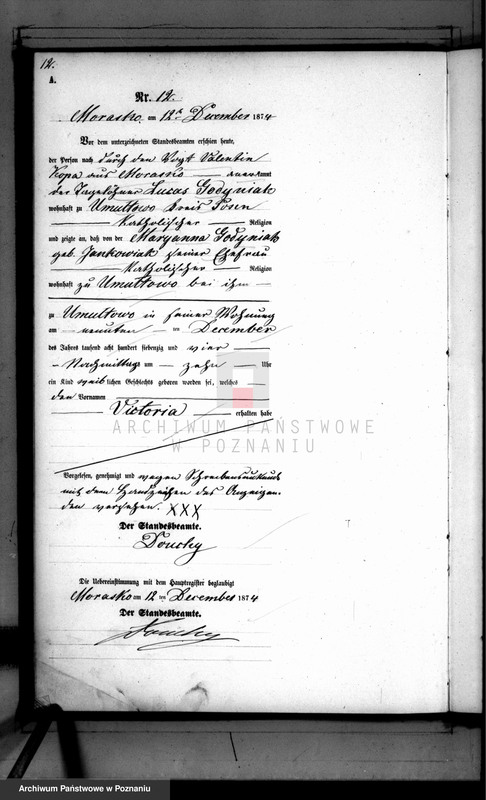 12.
A.
Nr. 12.
Morasko am 12t December 1874
Vor dem unterzeichneten Standesbeamten erschien heute,
der Person nach durch den Vogt Valentin
Kopa aus Morasko anerkannt
der Tagelöhner Lucas Godyniak
wohnhaft zu Umultowo Kreis Posen
Katholischer Religion
und zeigte an, daß von der Maryanna Godyniak
geb. Jankowiak seiner Ehefrau
Katholischer Religion
wohnhaft zu Umultowo bei ihm
zu Umultowo in seiner Wohnung
am neunten ten December
des Jahres tausend acht hundert siebenzig und vier
Nachmittags um zehn Uhr
ein Kind weiblichen Geschlechts geboren worden sei, welches
den Vornamen
Victoria erhalten habe
ARCHIWUM PAŃSTWOWE
W POZNANIU
Vorgelesen, genehmigt und wegen Schreibensunkunde
mit dem Handzeichen des Anzeigen-
den versehen. XXX
Der Standesbeamte.
Die Uebereinstimmung mit dem Hauptregister beglaubigt
Morasko am 12 ten December 1874
Der Standesbeamte.
Archiwum Państwowe w Poznaniu